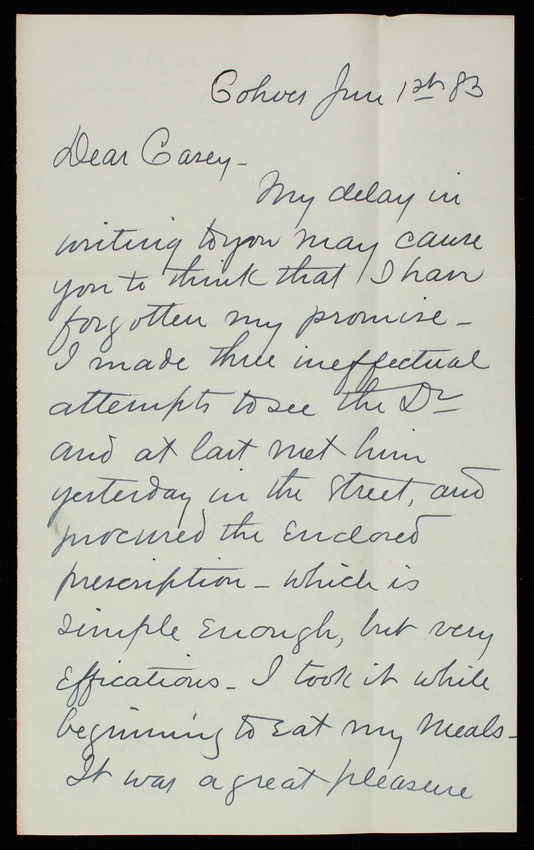 Cohoes June 1st 83
Dear Casey -
My delay in
writing to you may cause
you to think that I have
forgotten my promise -
I made three ineffectual
attempts to see the Dr
and at last met him
yesterday in the street, and
procured the enclosed
prescription - which is
simple enough, but very
efficatious - I took it while
beginning to eat my meals -
It was a great pleasure